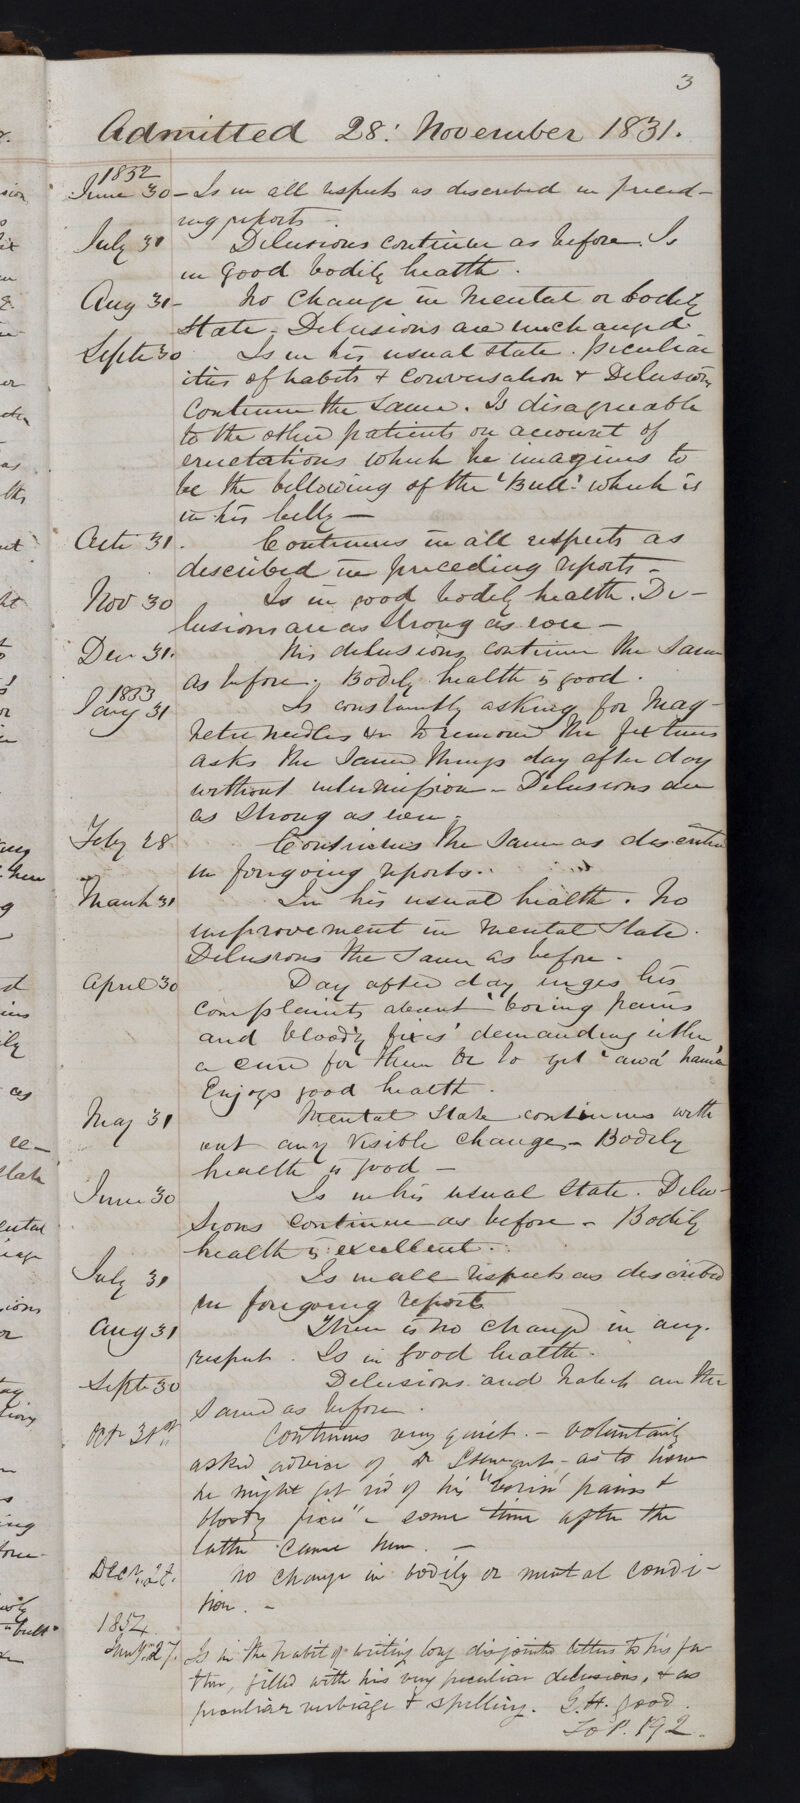 3
Admitted 28: November 1831.
1852
June 30 - Is in all respects as described in preced-
ing reports.
July 31 Delusions continue as before. Is
in good bodily health.
Aug 31 - No change in mental or bodily
State - Delusions are unchanged.
Septr 30 Is in his usual state. Peculiar
ities of habits & conversation & Delusions
Continue the same. Is disagreeable
to the other patients on account of
eructations which he imagines to
be the bellowing of the 'Bull' which is
in his belly -
Octr 31. Continues in all respects as
described in preceding reports -
Nov 30 Is in good bodily health. De-
lusions are as strong as ever -
Decr 31. His delusions continue the same
as before. Bodily health is good.
1853
Jany 31 Is constantly asking for Mag-
netic needles to remove the fixtures
asks the same things day after day
without intermission - Delusions are
as strong as ever.
Feby 28 Continues the same as described
in foregoing reports.
March 31 In his usual health. No
improvement in mental State.
Delusions the same as before.
April 30 Day after day urges his
complaints about 'boring pains
and bloody fixes' demanding either
a cure for them or to get 'awa' hame'
Enjoys good health.
May 31 Mental State continues with
out any visible change - Bodily
health is good -
June 30 Is in his usual State. Delu-
sions continue as before - Bodily
health is excellent.
July 31 Is in all respects as described
in foregoing reports
Aug 31 There is no change in any
respect. Is in good health.
Septr 30 Delusions and habits are the
same as before.
Octr 31st Continues very quiet. - Voluntarily
asked advice of Dr - as to how
he might get rid of his "borin' pains &
bloody fixes" - some time after the
latter came here. -
Decr. 28. No change in bodily or mental condi-
tion. -
1854.
Jany. 27. Is in the habit of writing long disjointed letters to his fa
ther, filled with his very peculiar delusions, & as
peculiar verbiage & spelling. G.H. good.
To P. 192.